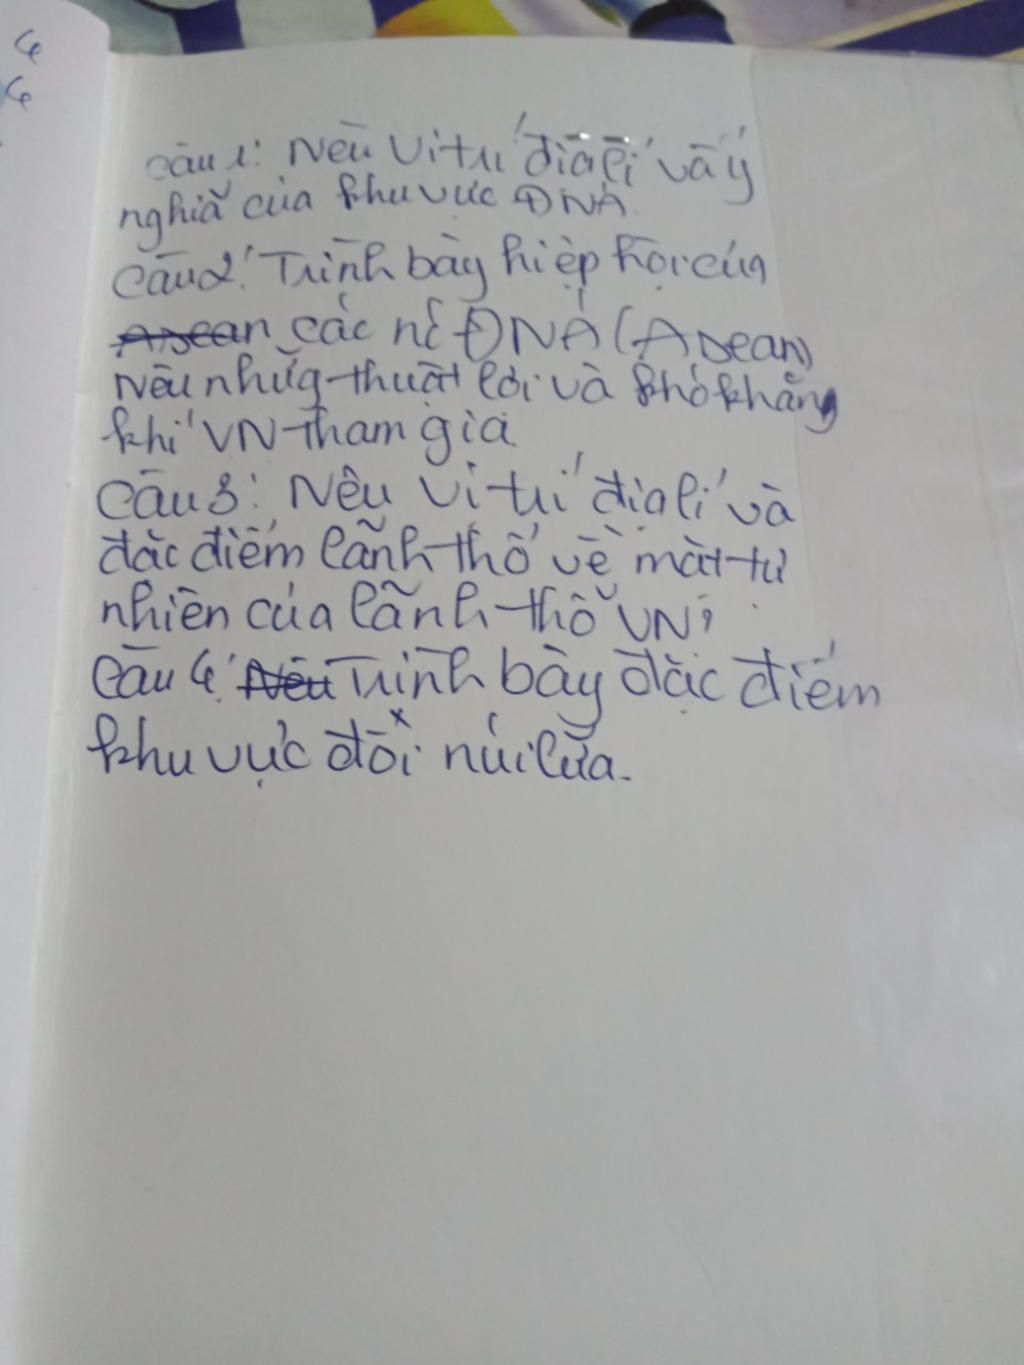 4
4
Câu 1: Nêu vị trí địa lí và ý
nghĩa của khu vực ĐNA.
Câu 2: Trình bày hiệp hội của
Asean các nc ĐNÁ (Asean)
Nêu nhữg thuật lợi và khó khăng
khi VN tham gia.
Câu 3: Nêu vị trí địa lí và
đặc điểm lãnh thổ về mặt tự
nhiên của lãnh thổ VN?
Câu 4: Nêu Trình bày đặc điểm
khu vực đồi núi lữa.